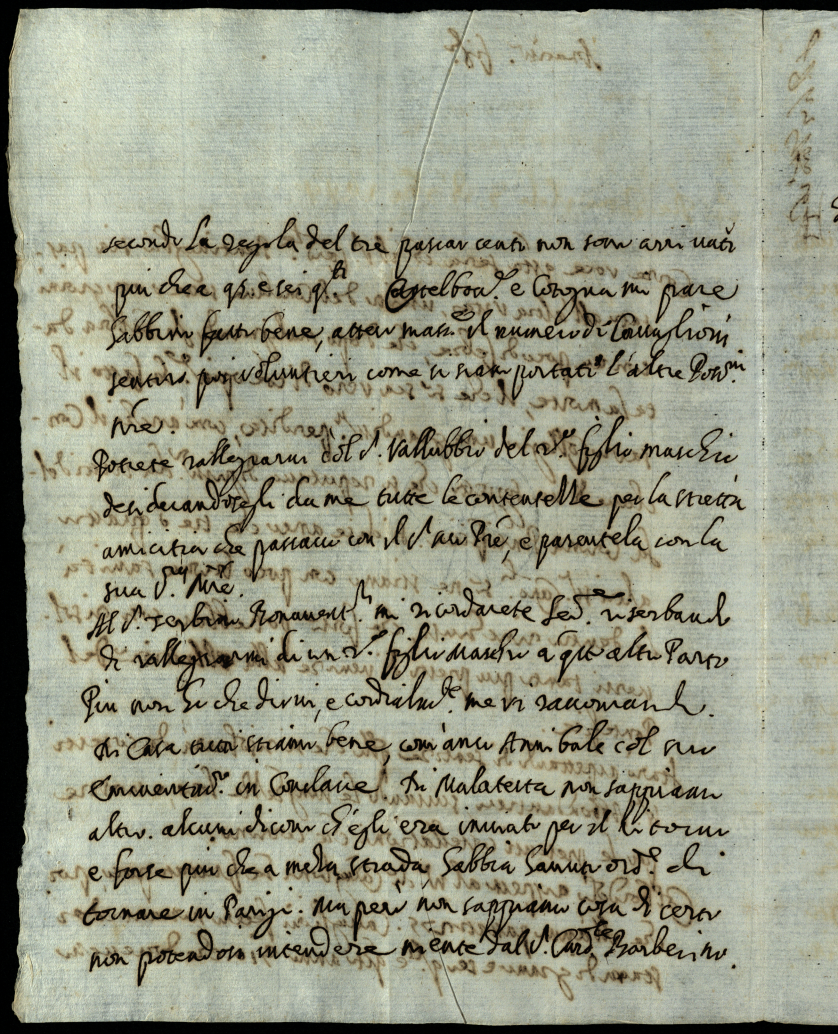 secondo la regola del tre passar cento non sono arrivati
piu che a q.ⁱ e sei q.ᵗⁱ Castelbon.ᵗ e Cotogna mi pare
habbino fatto bene, atteso mass.ᵉ il numero di Conviglioni
sentirò poi volentieri come si siano portati l'altre Poss.ⁿⁱ
nr̃e.
Potrete rallegrarvi col S.ʳ Vallubbio del 2.º figlio maschio
desiderandosegli da me tutte le contentezze per la stretta
amicitia che passavo con il S.ʳ suo Pr̃e, e parentela con la
sua S.ʳᵃ Mr̃e.
Al S.ʳ Serbino Bonavent.ʳᵃ mi ricordarete Ser.ʳᵉ riserbando
di rallegrarmi di un 2.º figlio Maschio a q̃sto altro Parto
Piu non hò che dirvi, e cordialm.ᵉ me vi raccomando.
Di Casa tutti stiamo bene, com'anco Annibale col suo
Eminentiss.º in Conclave. Di Malatesta non sappiamo
altro. alcuni dicono ch'egli era inviato per il ritorno
e forse piu che a meza strada, habbia havuto ord.ᵉ di
tornare in Parigi. Ma però non sappiamo cosa di certo
non potendosi intendere niente dal S.ʳ Card.ˡᵉ Barberino.